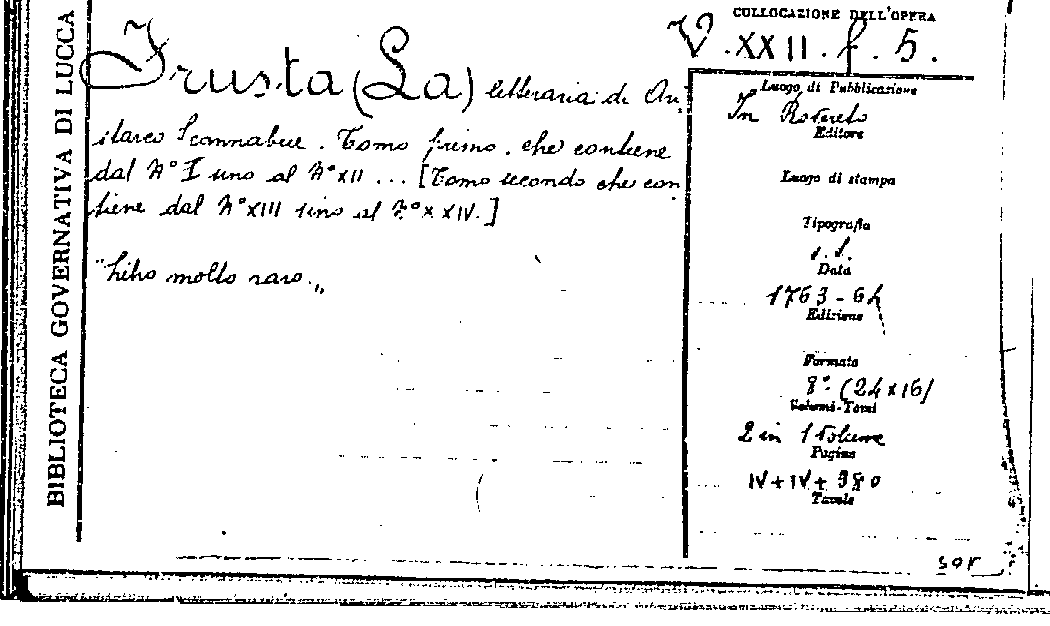 BIBLIOTECA GOVERNATIVA DI LUCCA
COLLOCAZIONE DELL'OPERA
V. XXII. f. 5.
Frusta (La) letteraria di Ari
starco Scannabue. Tomo primo, che contiene
dal N° I sino al N° XII ... [Tomo secondo che con
tiene dal N° XIII sino al N° XXIV.]
"Libro molto raro„
Luogo di Pubblicazione
In Rovereto
Editore
Luogo di stampa
Tipografia
s. t.
Data
1763-64
Edizione
Formato
8° (24x16)
Volumi-Tomi
2 in 1 Volume
Pagine
IV + IV + 380
Tavole